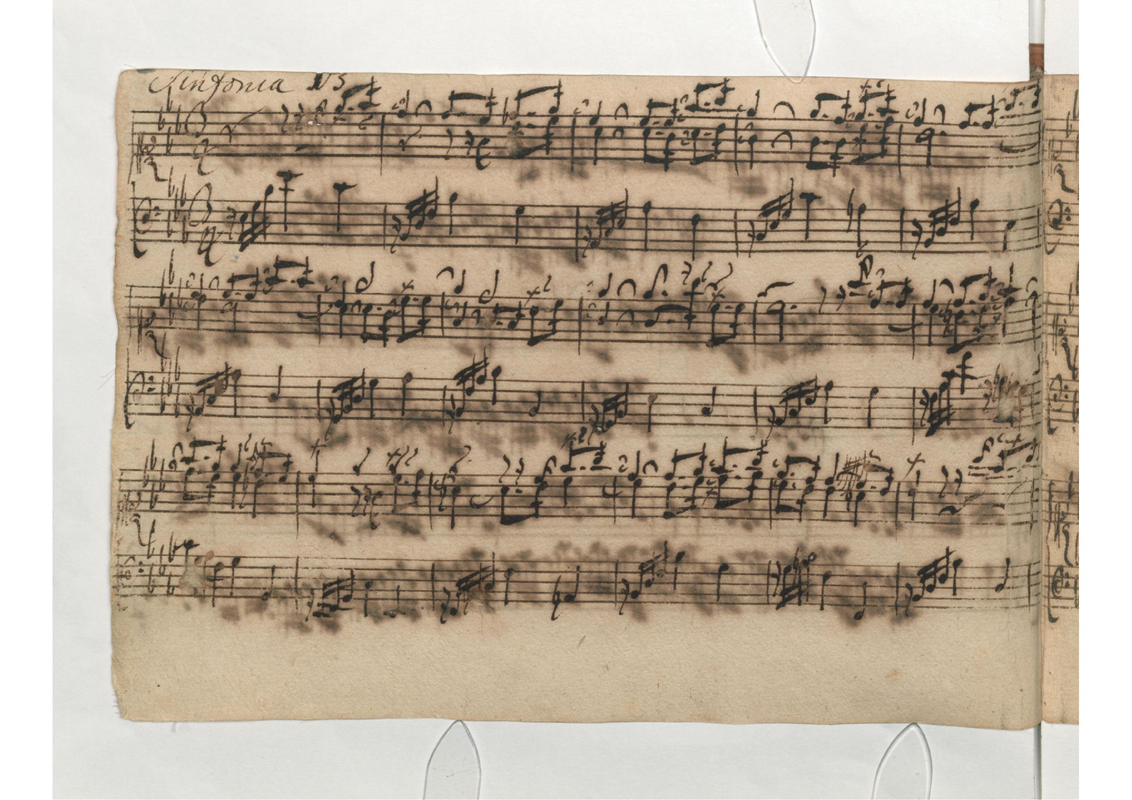 Sinfonia 5